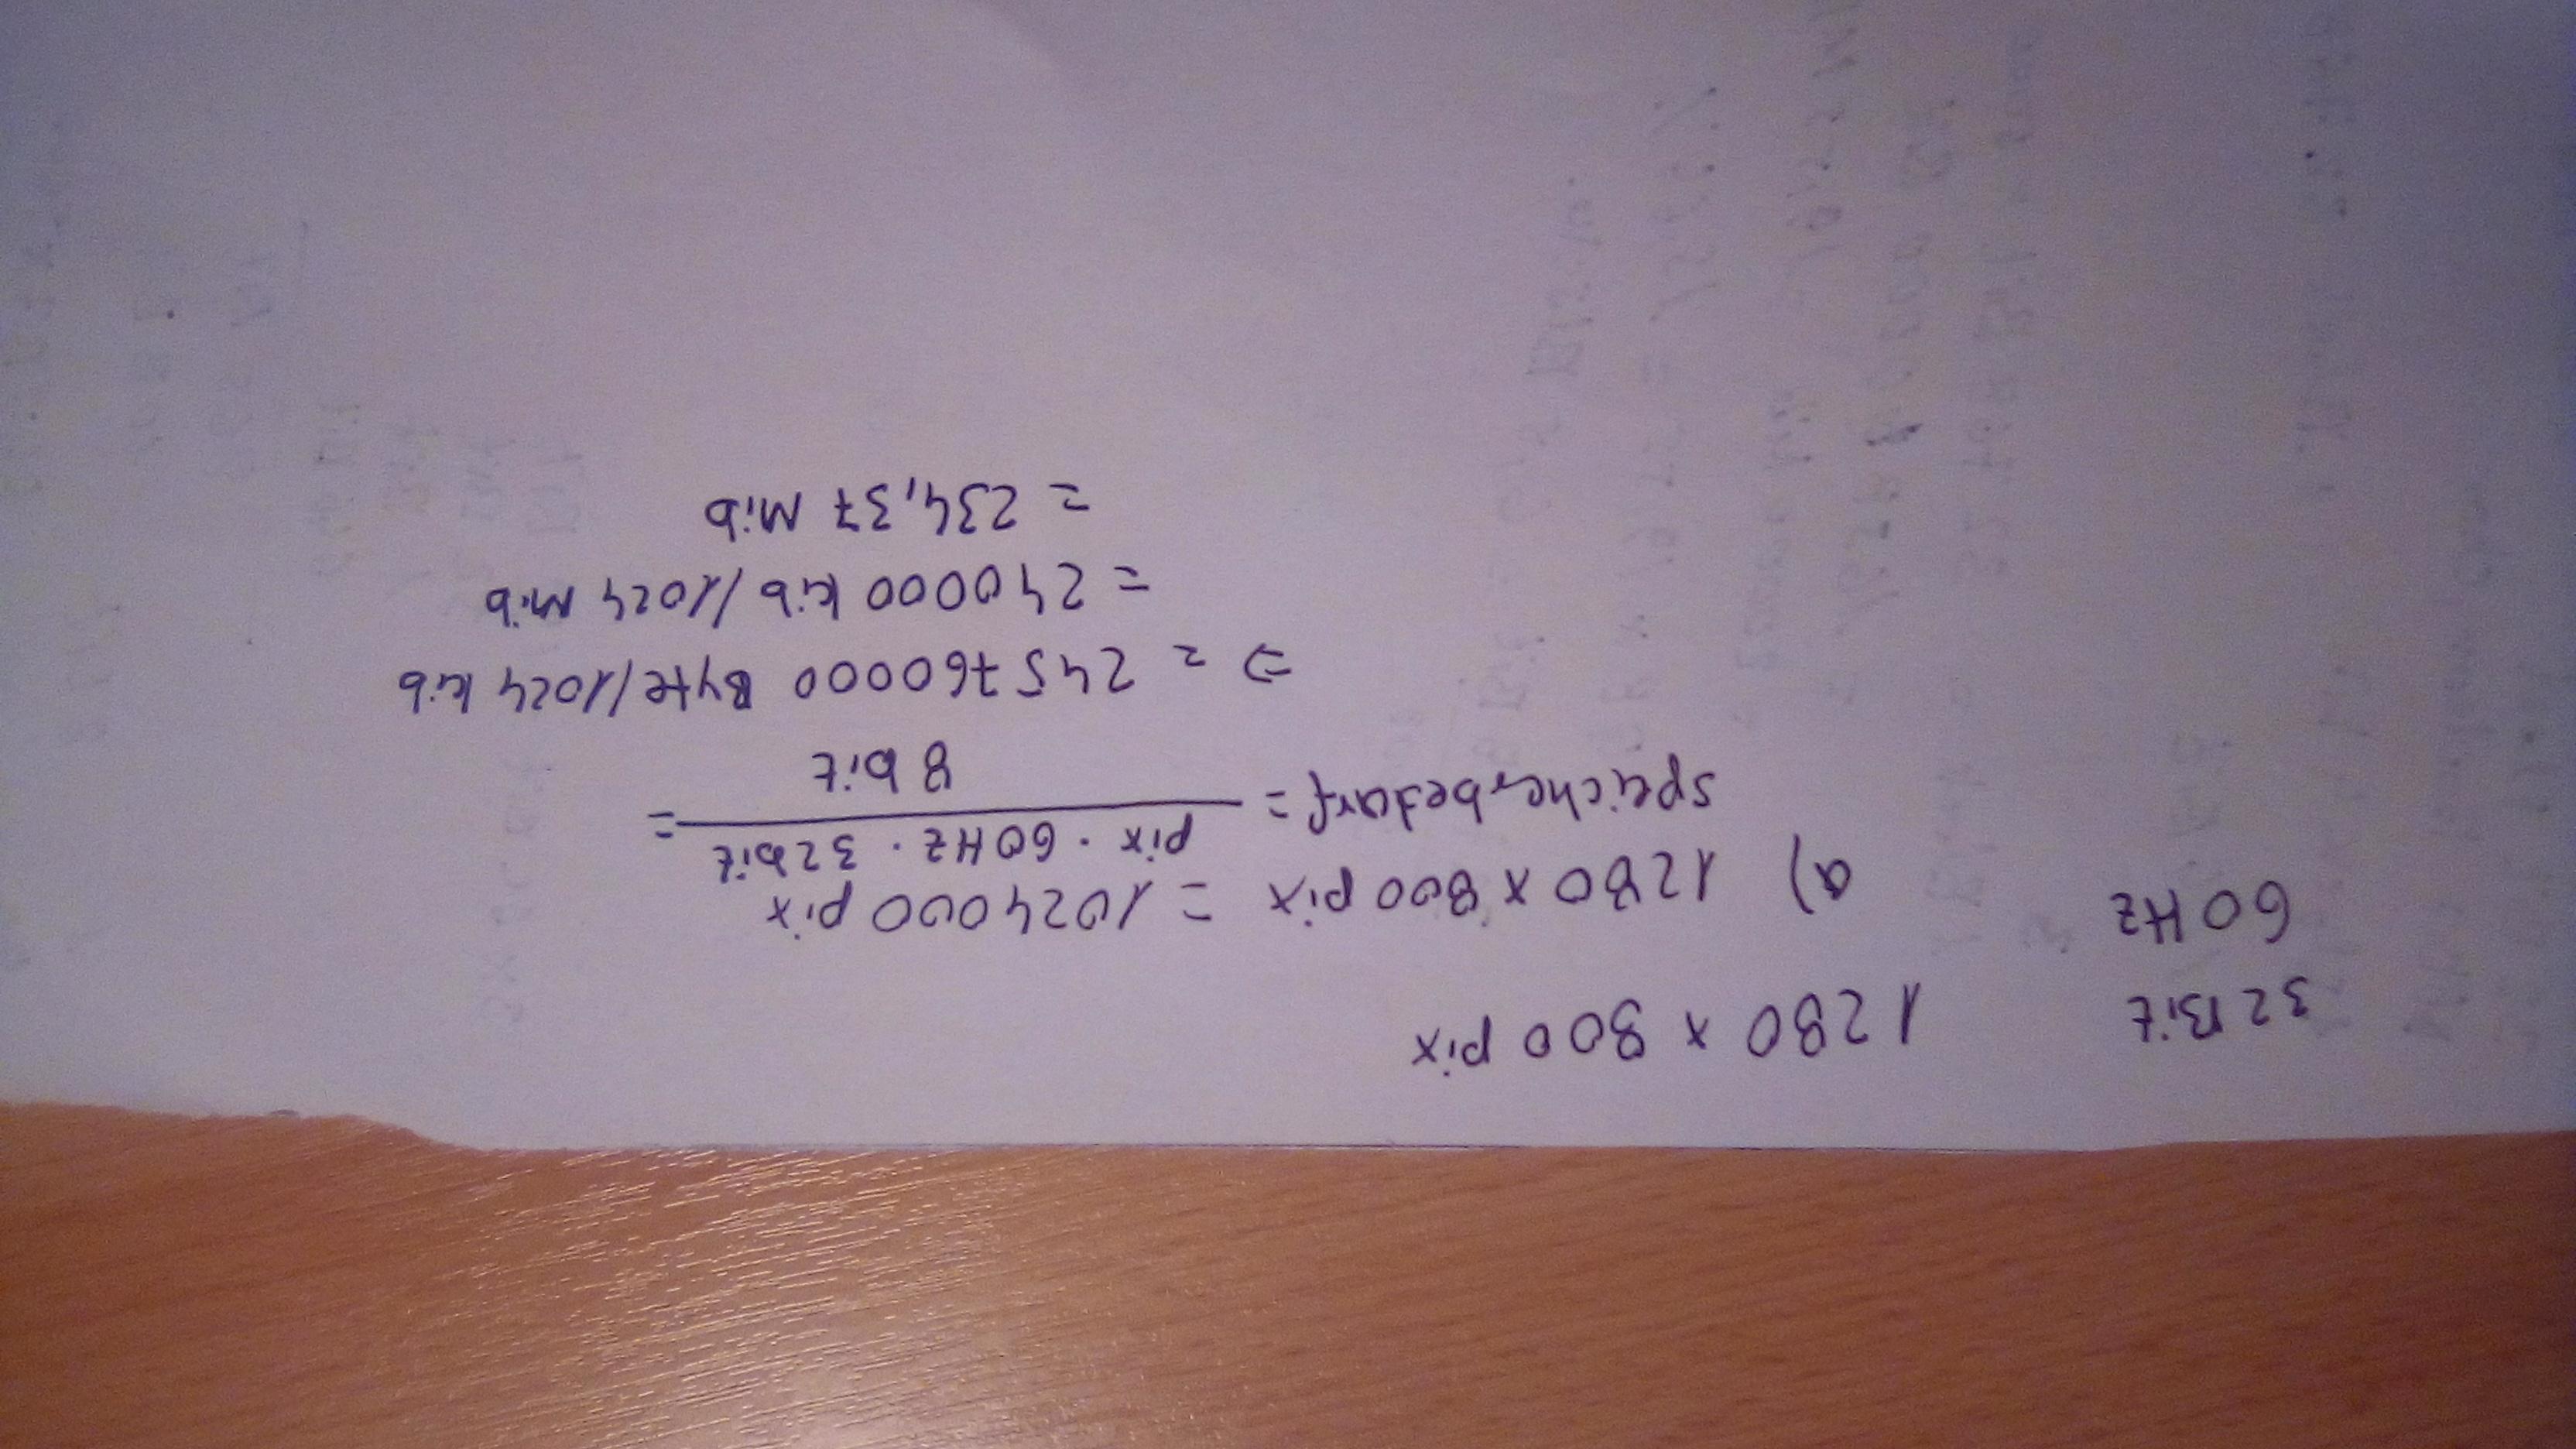 32 Bit 1280 x 800 pix
60 Hz
a) 1280 x 800 pix = 1024000 pix
Speicherbedarf = pix · 60 Hz · 32 bit =
8 bit
⇒ = 245760000 Byte/1024 kib
= 240000 kib/1024 Mib
= 234,37 Mib